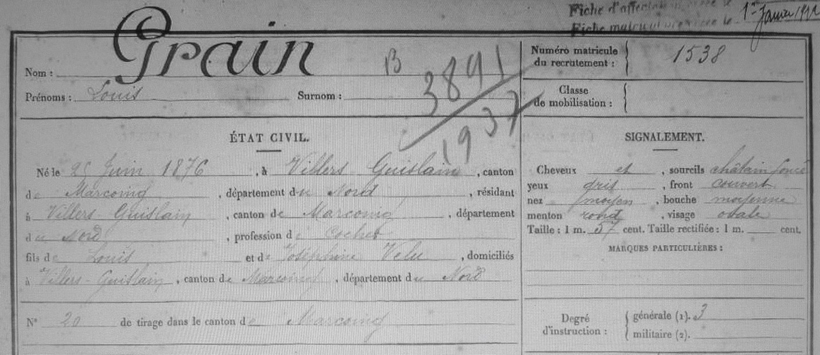 Fiche d'affectation
Fiche matricule le 1er Janvier
Nom : Grain B
Prénoms : Louis Surnom :
3891
1937
Numéro matricule du recrutement : 1538
Classe de mobilisation :
ÉTAT CIVIL.
Né le 25 Juin 1876, à Villers Guislain, canton
de Marcoing, département du Nord, résidant
à Villers-Guislain, canton de Marcoing, département
du Nord, profession de Cocher
fils de Louis et de Joséphine Velu, domiciliés
à Villers-Guislain, canton de Marcoing, département du Nord
N° 20 de tirage dans le canton de Marcoing
SIGNALEMENT.
Cheveux et, sourcils châtain foncé
yeux gris, front couvert
nez moyen, bouche moyenne
menton rond, visage ovale
Taille : 1 m. 57 cent. Taille rectifiée : 1 m. cent.
MARQUES PARTICULIÈRES :
Degré d'instruction : générale (1). 3
militaire (2).